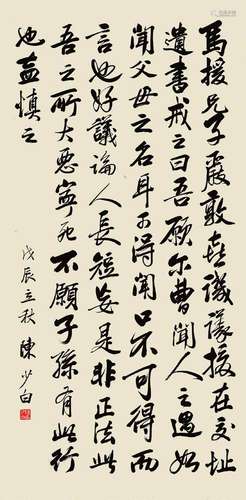 馬援兄子嚴敦喜譏議援在交址
遺書戒之曰吾願尔曹聞人之過如
聞父母之名耳可得聞口不可得而
言也好議論人長短妄是非正法此
吾之所大惡寧死不願子孫有此行
也盍慎之
戊辰立秋 陳少白